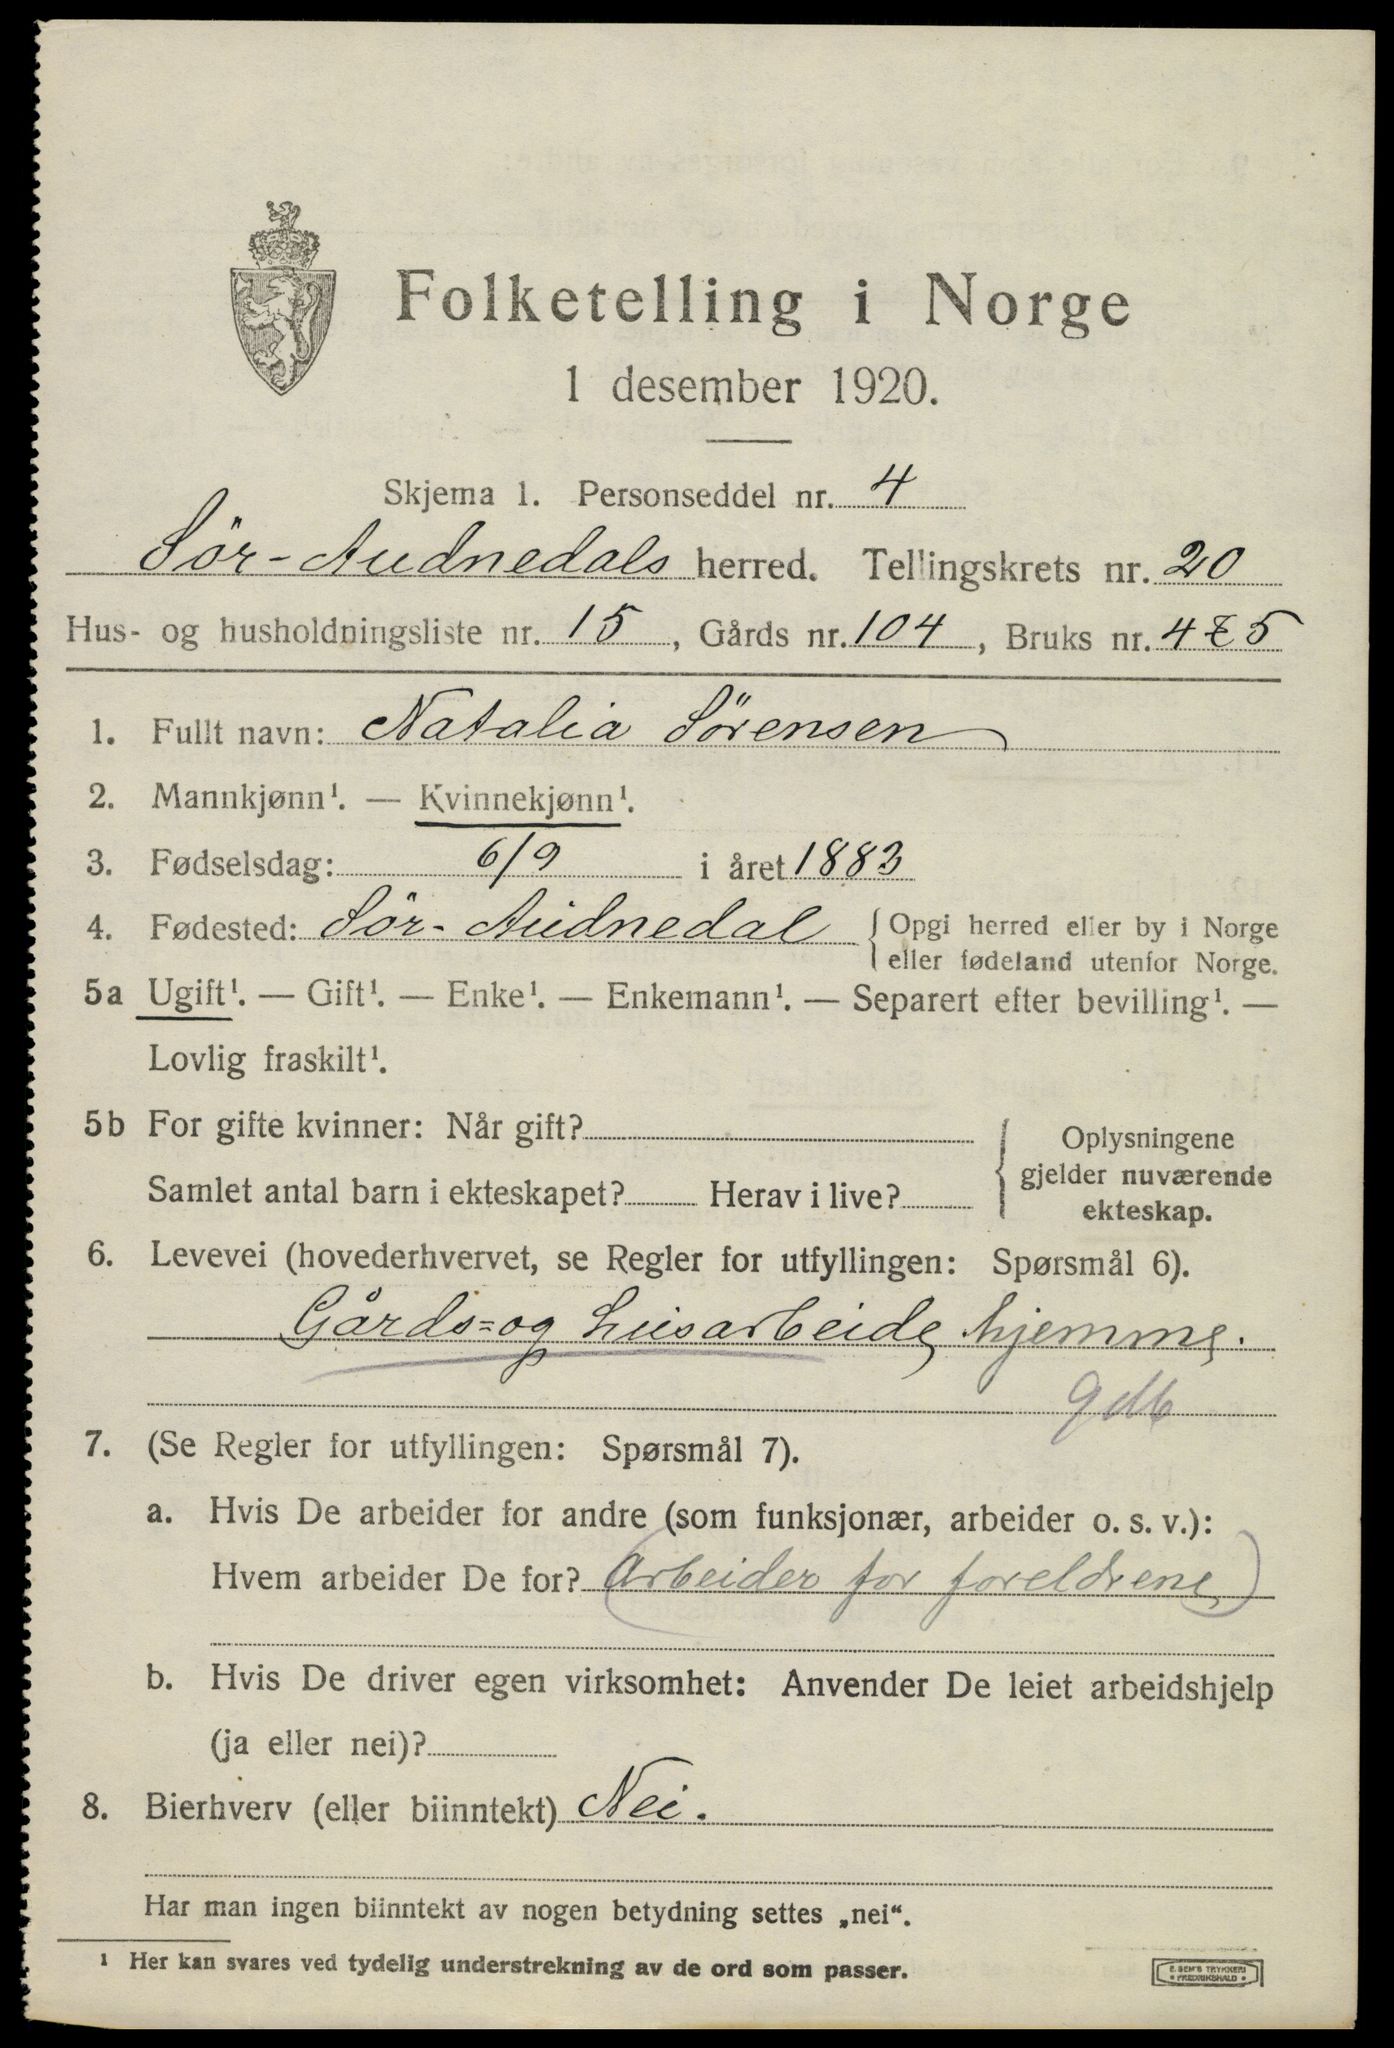 Folketelling i Norge
1 desember 1920.
Skjema 1. Personseddel nr. 4
Sör-Audnedals herred. Tellingskrets nr. 20
Hus- og husholdningsliste nr. 15, Gårds nr. 104, Bruks nr. 4 & 5
1. Fullt navn: Natalia Sörensen
2. Mannkjønn¹. — Kvinnekjønn¹.
3. Fødselsdag: 6/9 i året 1883
4. Fødested: Sör-Audnedal { Opgi herred eller by i Norge
eller fødeland utenfor Norge.
5a Ugift¹. — Gift¹. — Enke¹. — Enkemann¹. — Separert efter bevilling¹. —
Lovlig fraskilt¹.
5b For gifte kvinner: Når gift? { Oplysningene
gjelder nuværende
ekteskap.
Samlet antal barn i ekteskapet? Herav i live?
6. Levevei (hovederhvervet, se Regler for utfyllingen: Spørsmål 6).
Gårds= og husarbeide hjemme.
7. (Se Regler for utfyllingen: Spørsmål 7).
a. Hvis De arbeider for andre (som funksjonær, arbeider o. s. v.):
Hvem arbeider De for? (Arbeider for foreldrene)
b. Hvis De driver egen virksomhet: Anvender De leiet arbeidshjelp
(ja eller nei)?
8. Bierhverv (eller biinntekt) Nei.
Har man ingen biinntekt av nogen betydning settes „nei“.
¹ Her kan svares ved tydelig understrekning av de ord som passer.
E. SEM'S TRYKKERI
FREDRIKSHALD